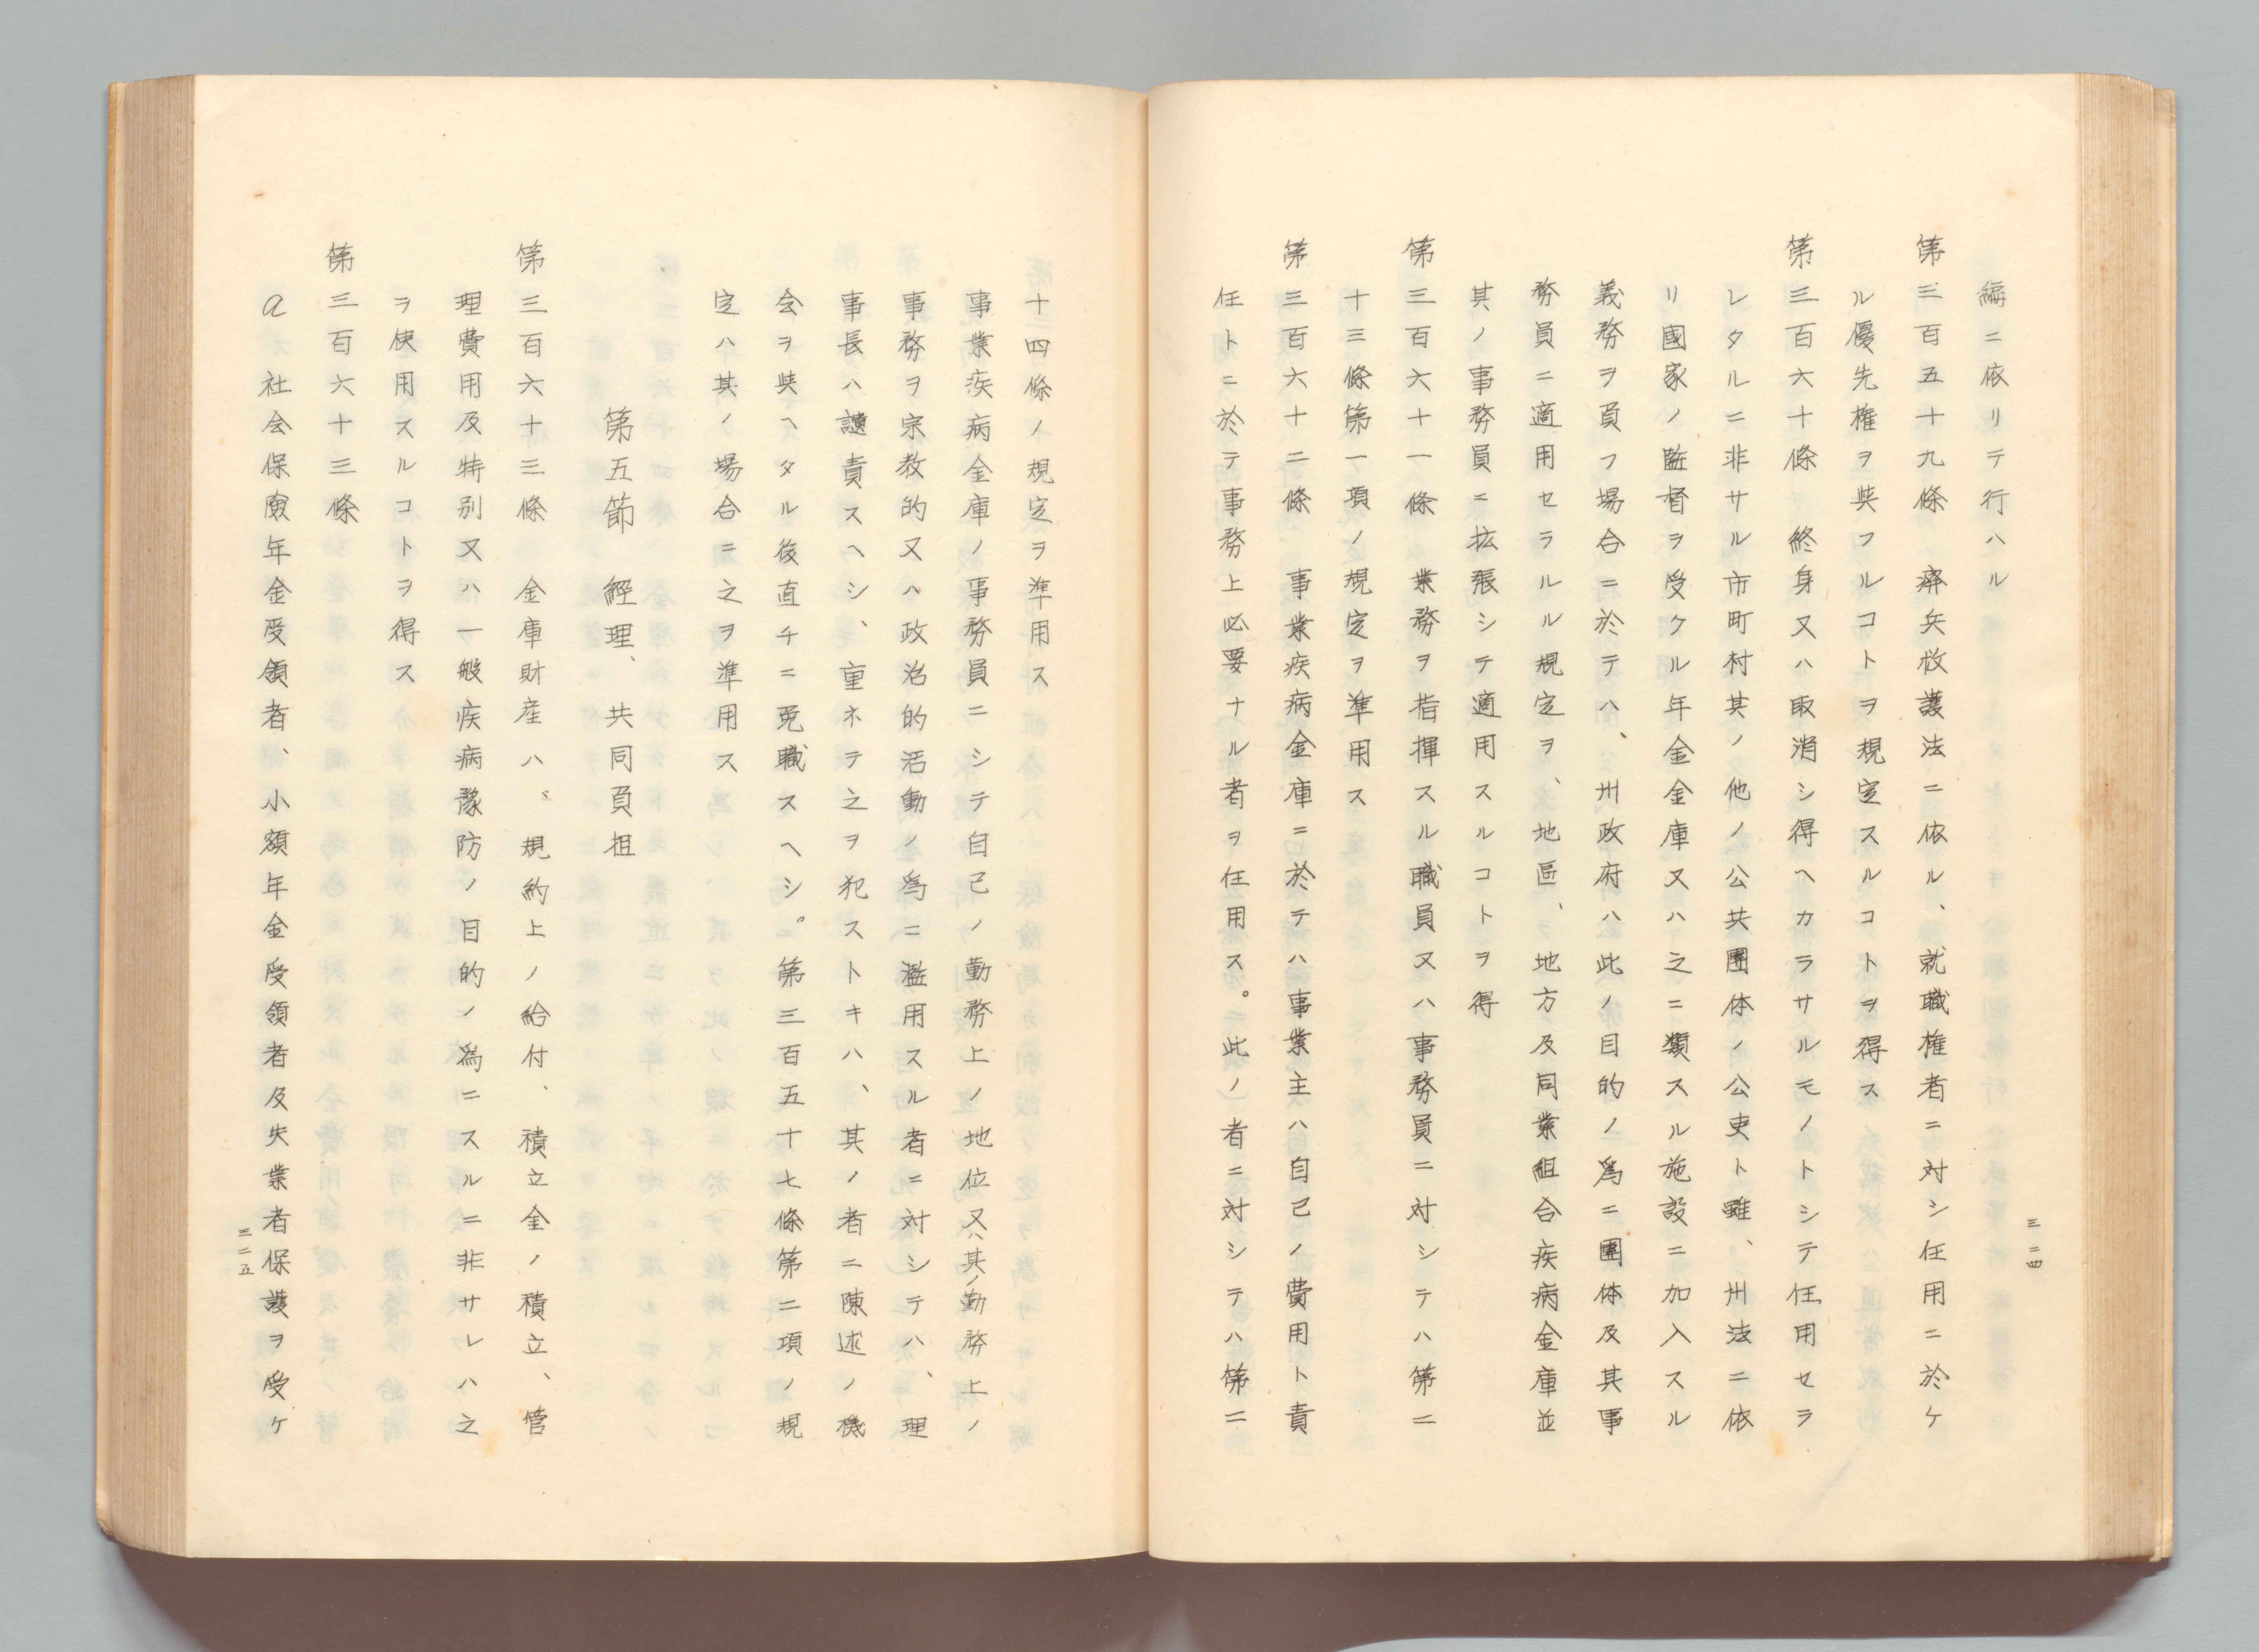 編ニ依リテ行ハル
第三百五十九條 癈兵救護法ニ依ル、就職権者ニ対シ任用ニ於ケ
ル優先権ヲ與フルコトヲ規定スルコトヲ得ス
第三百六十條 終身又ハ取消シ得ヘカラサルモノトシテ任用セラ
レタルニ非サル市町村其ノ他ノ公共團体ノ公吏ト雖、州法ニ依
リ國家ノ監督ヲ受クル年金金庫又ハ之ニ類スル施設ニ加入スル
義務ヲ負フ場合ニ於テハ、州政府ハ此ノ目的ノ爲ニ團体及其事
務員ニ適用セラルル規定ヲ、地區、地方及同業組合疾病金庫並
其ノ事務員ニ拡張シテ適用スルコトヲ得
第三百六十一條 業務ヲ指揮スル職員又ハ事務員ニ対シテハ第二
十三條第一項ノ規定ヲ準用ス
第三百六十二條 事業疾病金庫ニ於テハ事業主ハ自己ノ費用ト責
任トニ於テ事務上必要ナル者ヲ任用ス。此ノ者ニ対シテハ第二
三二四
十四條ノ規定ヲ準用ス
事業疾病金庫ノ事務員ニシテ自己ノ勤務上ノ地位又ハ其ノ勤務上ノ
事務ヲ宗教的又ハ政治的活動ノ爲ニ濫用スル者ニ対シテハ、理
事長ハ譴責スヘシ、重ネテ之ヲ犯ストキハ、其ノ者ニ陳述ノ機
会ヲ與ヘタル後直チニ免職スヘシ。第三百五十七條第二項ノ規
定ハ其ノ場合ニ之ヲ準用ス
第五節 經理、共同負担
第三百六十三條 金庫財産ハ、規約上ノ給付、積立金ノ積立、管
理費用及特別又ハ一般疾病豫防ノ目的ノ爲ニスルニ非サレハ之
ヲ使用スルコトヲ得ス
第三百六十三條
a 社会保険年金受領者、小額年金受領者及失業者保護ヲ受ケ
三二五